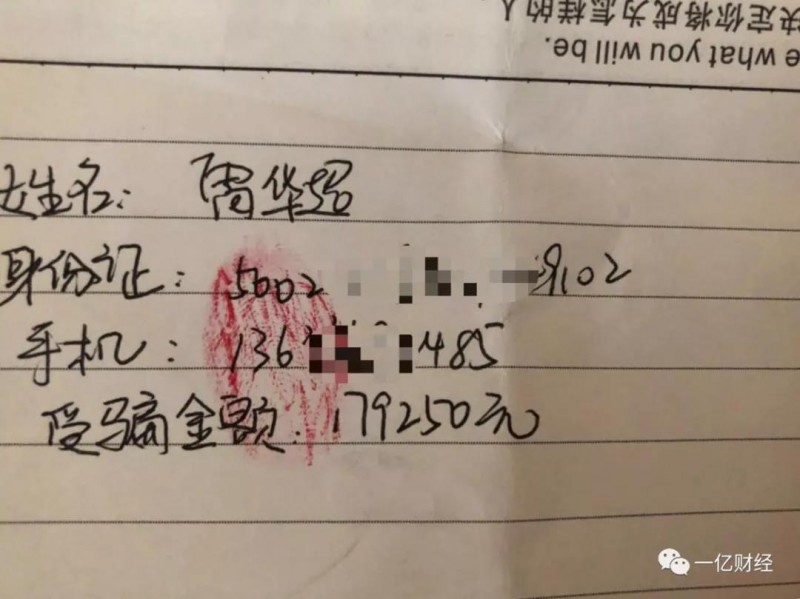 e what you will be.
决定你将成为怎样的人
姓名: 周华超
身份证: 5002 9102
手机: 136 1485
受骗金额: 179250元
一亿财经